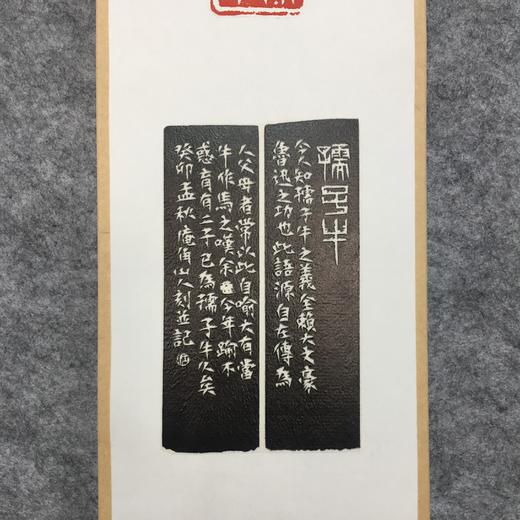 孺子牛
今人知孺子牛之義全賴大文豪
魯迅之功也此語源自左傳為
人父母者常以此自喻大有當
牛作馬之嘆余今年踰不
惑育有二子已為孺子牛久矣
癸卯孟秋庵角山人刻並記